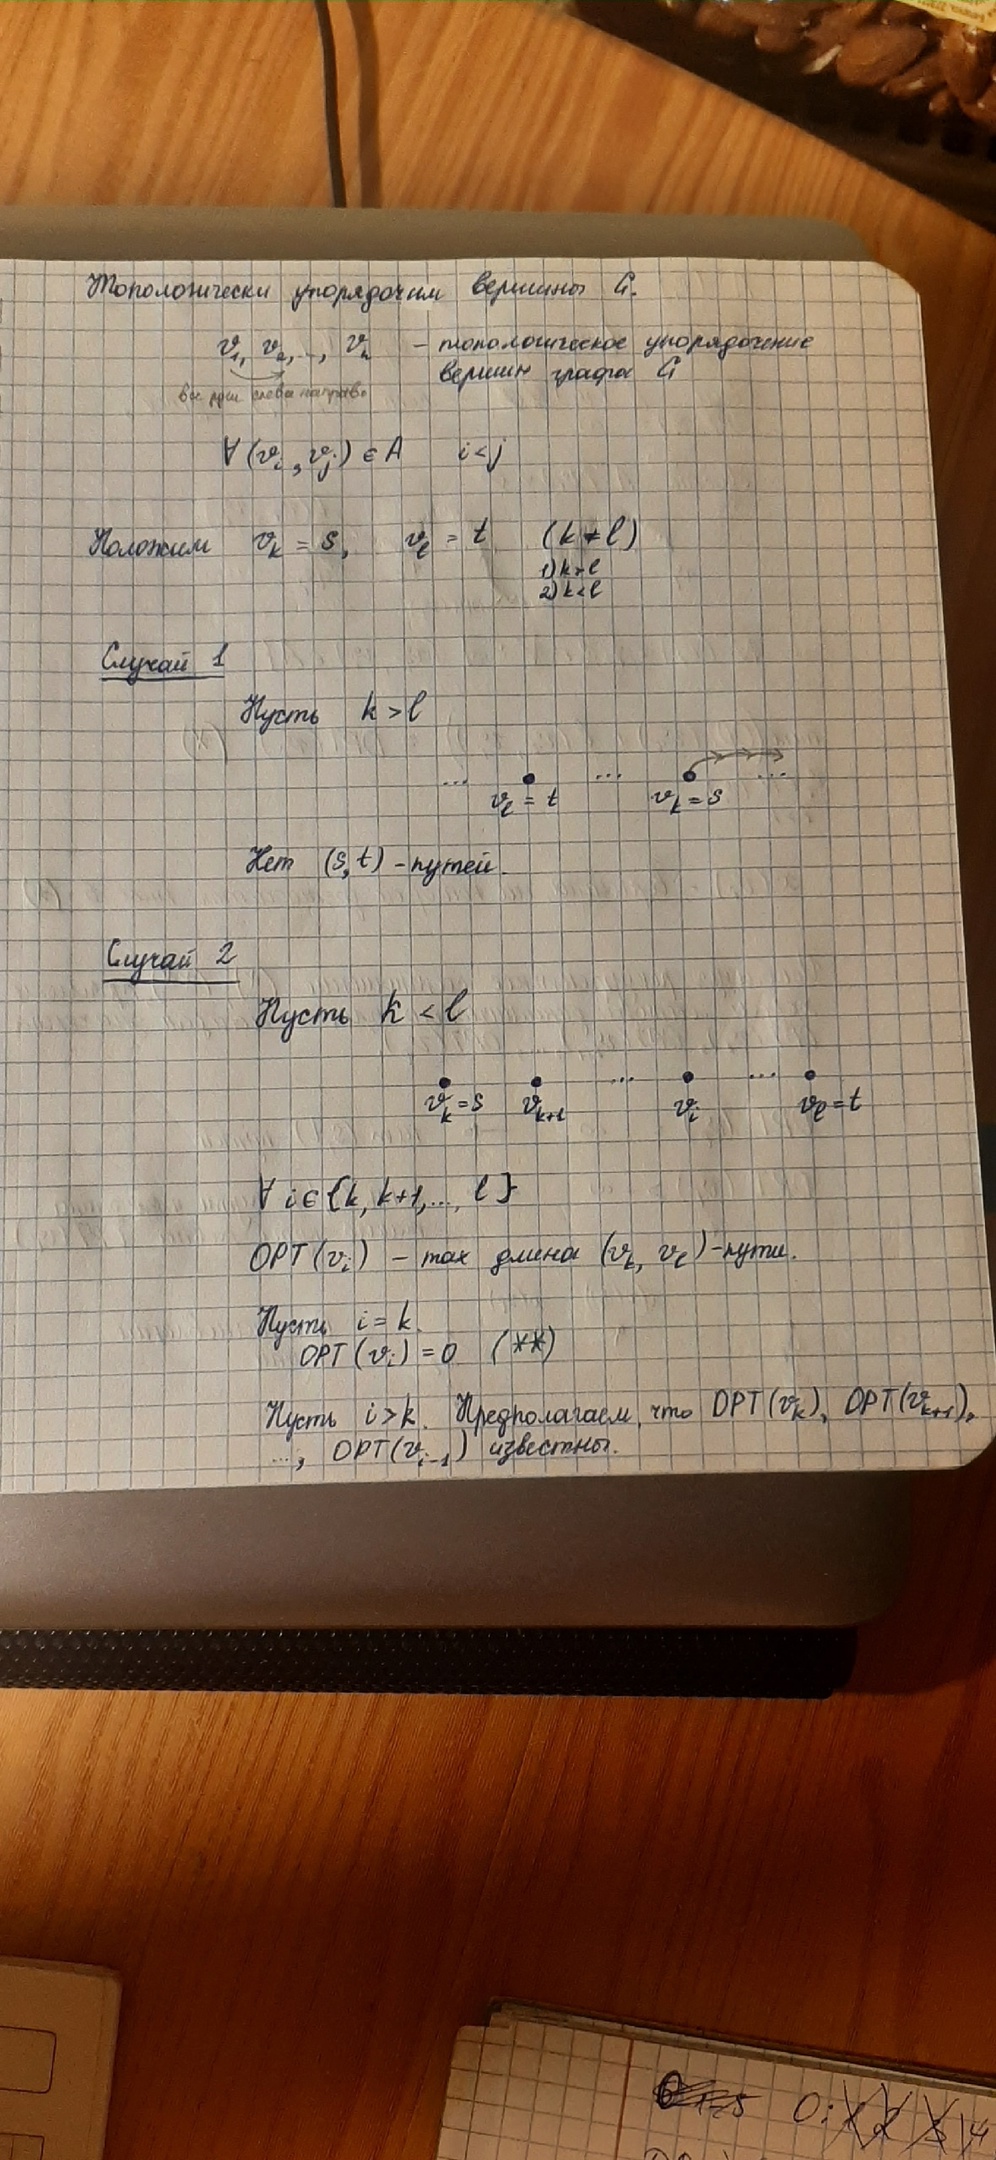 Топологически упорядочим вершины G.
v₁, v₂, ..., vₙ – топологическое упорядочение
вершин графа G
все дуги слева направо
∀ (vᵢ, vⱼ) ∈ A i < j
Положим vₖ = s, vₗ = t (k ≠ l)
1) k > l
2) k < l
Случай 1
Пусть k > l
... ... ...
vₗ = t vₖ = s
Нет (s, t) – путей.
Случай 2
Пусть k < l
... ...
vₖ = s vₖ₊₁ vᵢ vₗ = t
∀ i ∈ {k, k+1, ..., l}
OPT(vᵢ) – max длина (vₖ, vₗ) – пути.
Пусть i = k.
OPT(vᵢ) = 0 (**)
Пусть i > k. Предполагаем, что OPT(vₖ), OPT(vₖ₊₁),
..., OPT(vᵢ₋₁) известны.